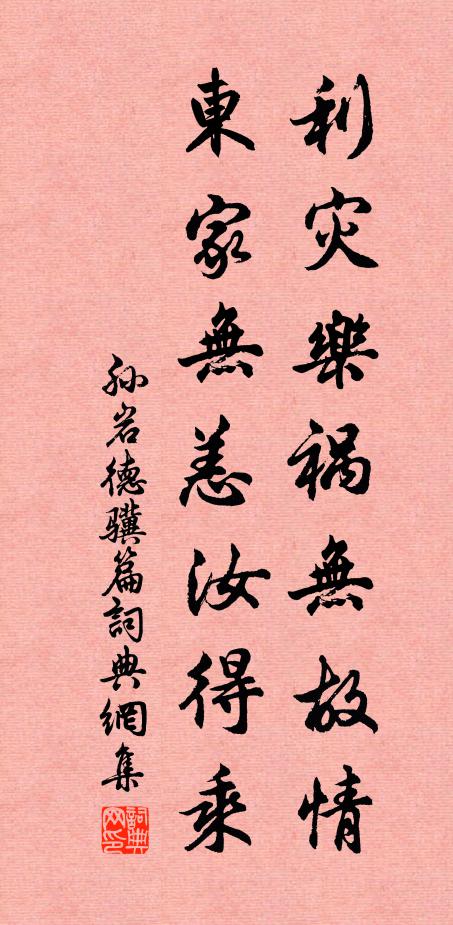 利灾樂禍無故情
東家無恙汝得乘
孙岩德驥篇詞典網集
詞典网印